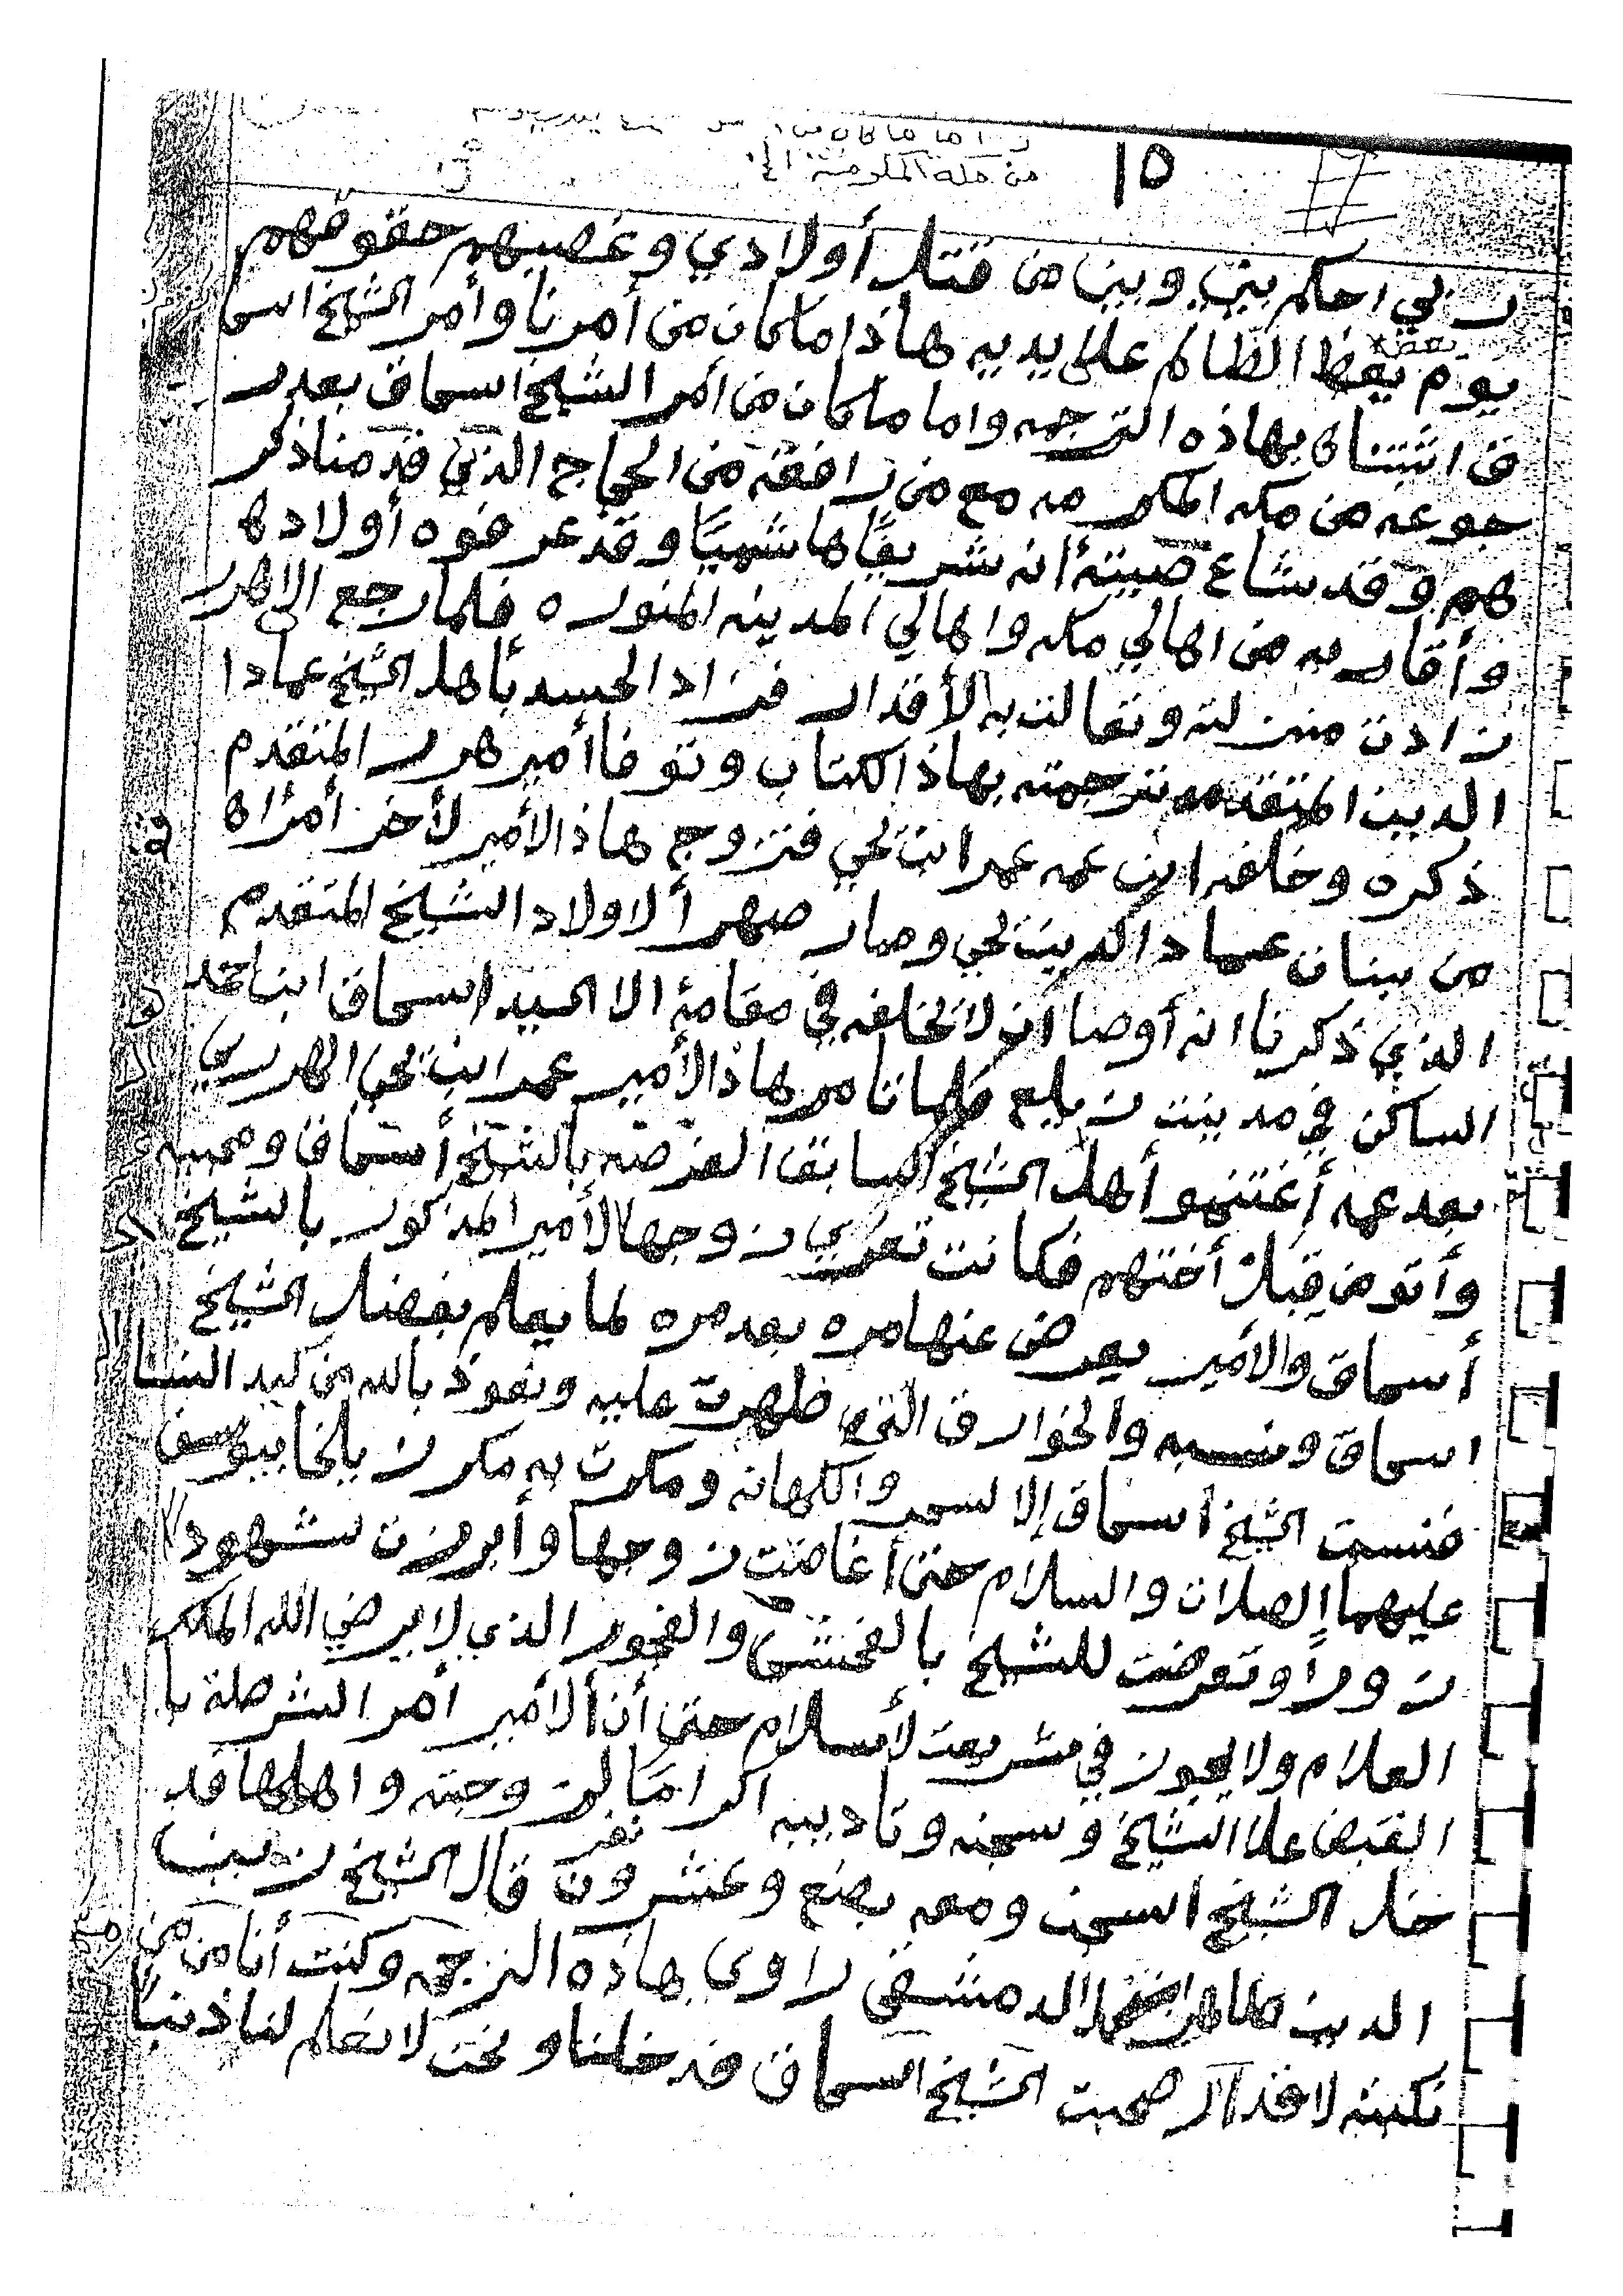 من مكة المكرمة الى
١٥
ربي احكم بيني وبين من قتل أولادي وغصبهم حقوقهم
يوم يعظ الظالم على يديه هاذا ماكان من أمرنا وأمر الشيخ اسحا
ق اثبتناه بهاذه الترجمه واما ماكان من أمر الشيخ اسحاق بعد ر
جوعه من مكه المكرمه مع من رافقه من الحجاج الذي قدمنا ذكر
هم وقد شاع صيتهُ أنه شريفًا هاشميًا وقد عرفوه أولادها
وأقاربه من اهالي مكه واهالي المدينه المنوره فلما رجع الا هرر
زادت منزلته وتعالت به الأقدار فزاد الحسد بأهل الشيخ عمادا
الدين المتقدمه ترجمته بهاذا الكتاب وتوفا أمير هرر المتقدم
ذكره وخلفه ابن عمه عمر ابن يحي فتزوج هاذا الأمير لأخر أمرأه
من بنات عماد الدين يحي وصار صهراً لاولاد الشيخ المتقدم
الذي ذكرنا انه أوصا ان لا يخلفه في مقامهُ الا السيد اسحاق ابن احمد
الساكن في مدينت زيلع فلما تامر هاذا الأمير عمر ابن يحي الهرري
بعد عمه أغتنمو أهل الشيخ السابق الفرصه بالشيخ أسحاق ومحبيه
وأتو من قبل أختهم فكانت تغري زوجها الأمير المذكور بالشيخ
أسحاق والأمير يعرض عنها مره بعد مره لما يعلم بفضل الشيخ
اسحاق ونسبه والخوارق التي ظهرت عليه ونعوذ بالله من كيد النسا
فنسبت الشيخ اسحاق إلا لسحر والكهانه ومكرت به مكر زيلخا بيوسف
عليهما الصلات والسلام حتى أغاضت زوجها وأبرزت شهود
زوراً وتعرضت للشيخ بالفحشى والفجور الذي لا يرضي الله الملك
العلام ولا يجوز في شريعت لأسلام حتى أن ألأمير أمر الشرطة با
القبض علا الشيخ وسجنه وتاديبه اكرامًا لزوجته واهلها فد
خل الشيخ السجن ومعه بضع وعشرون نفر قال الشيخ زين
الدين الدمشقي راوي هاذه الترجمه وكنت أنا من من
نكبته لاقدار صحبت الشيخ اسحاق فدخلنا ونحن لا نعلم لنا ذنباً